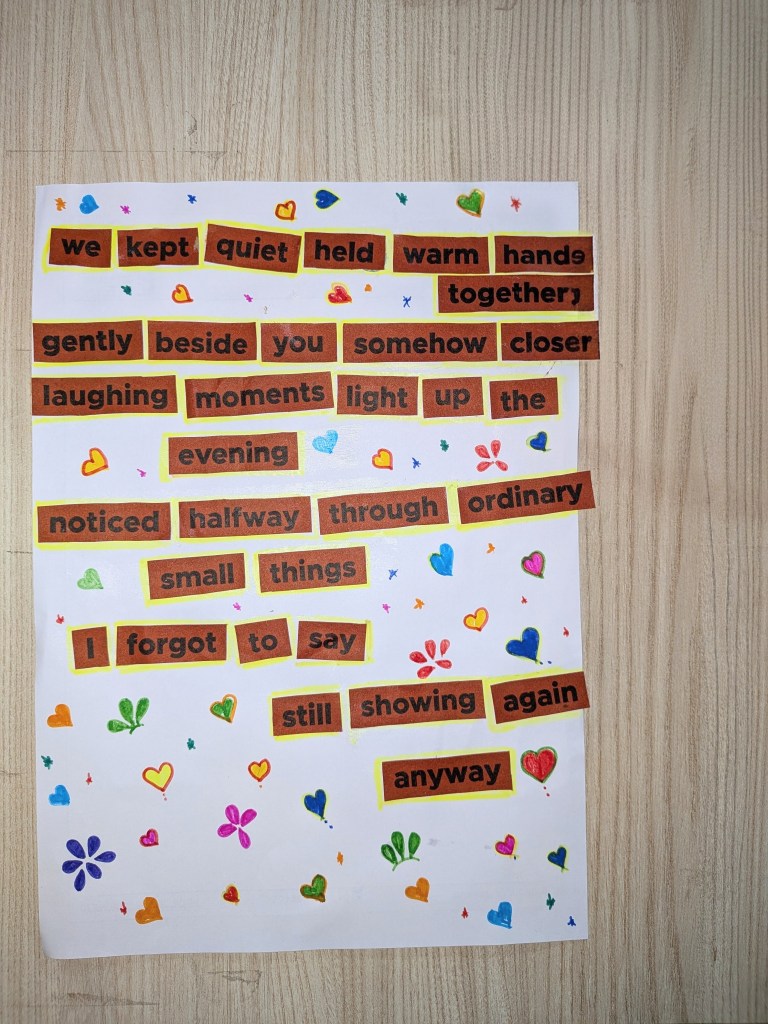 we kept quiet held warm hands
together,
gently beside you somehow closer
laughing moments light up the
evening
noticed halfway through ordinary
small things
I forgot to say
still showing again
anyway